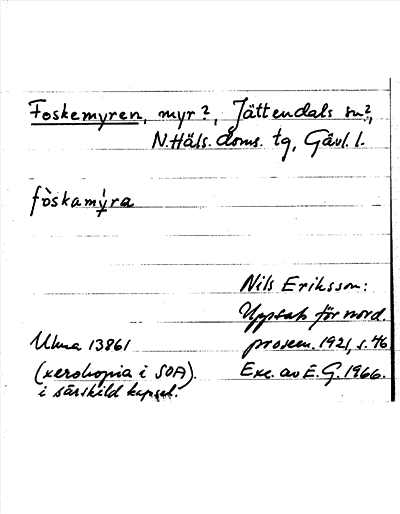 Foskemyren, myr?, Jättendals sn?,
N.Häls. doms. tg, Gävl. l.
fòskamýra
Nils Eriksson:
Uppsats för nord.
prosem. 1921, s. 46
Exc. av E. G. 1966.
Ulma 13861
(xerokopia i SOA).
i särskild kapsel.